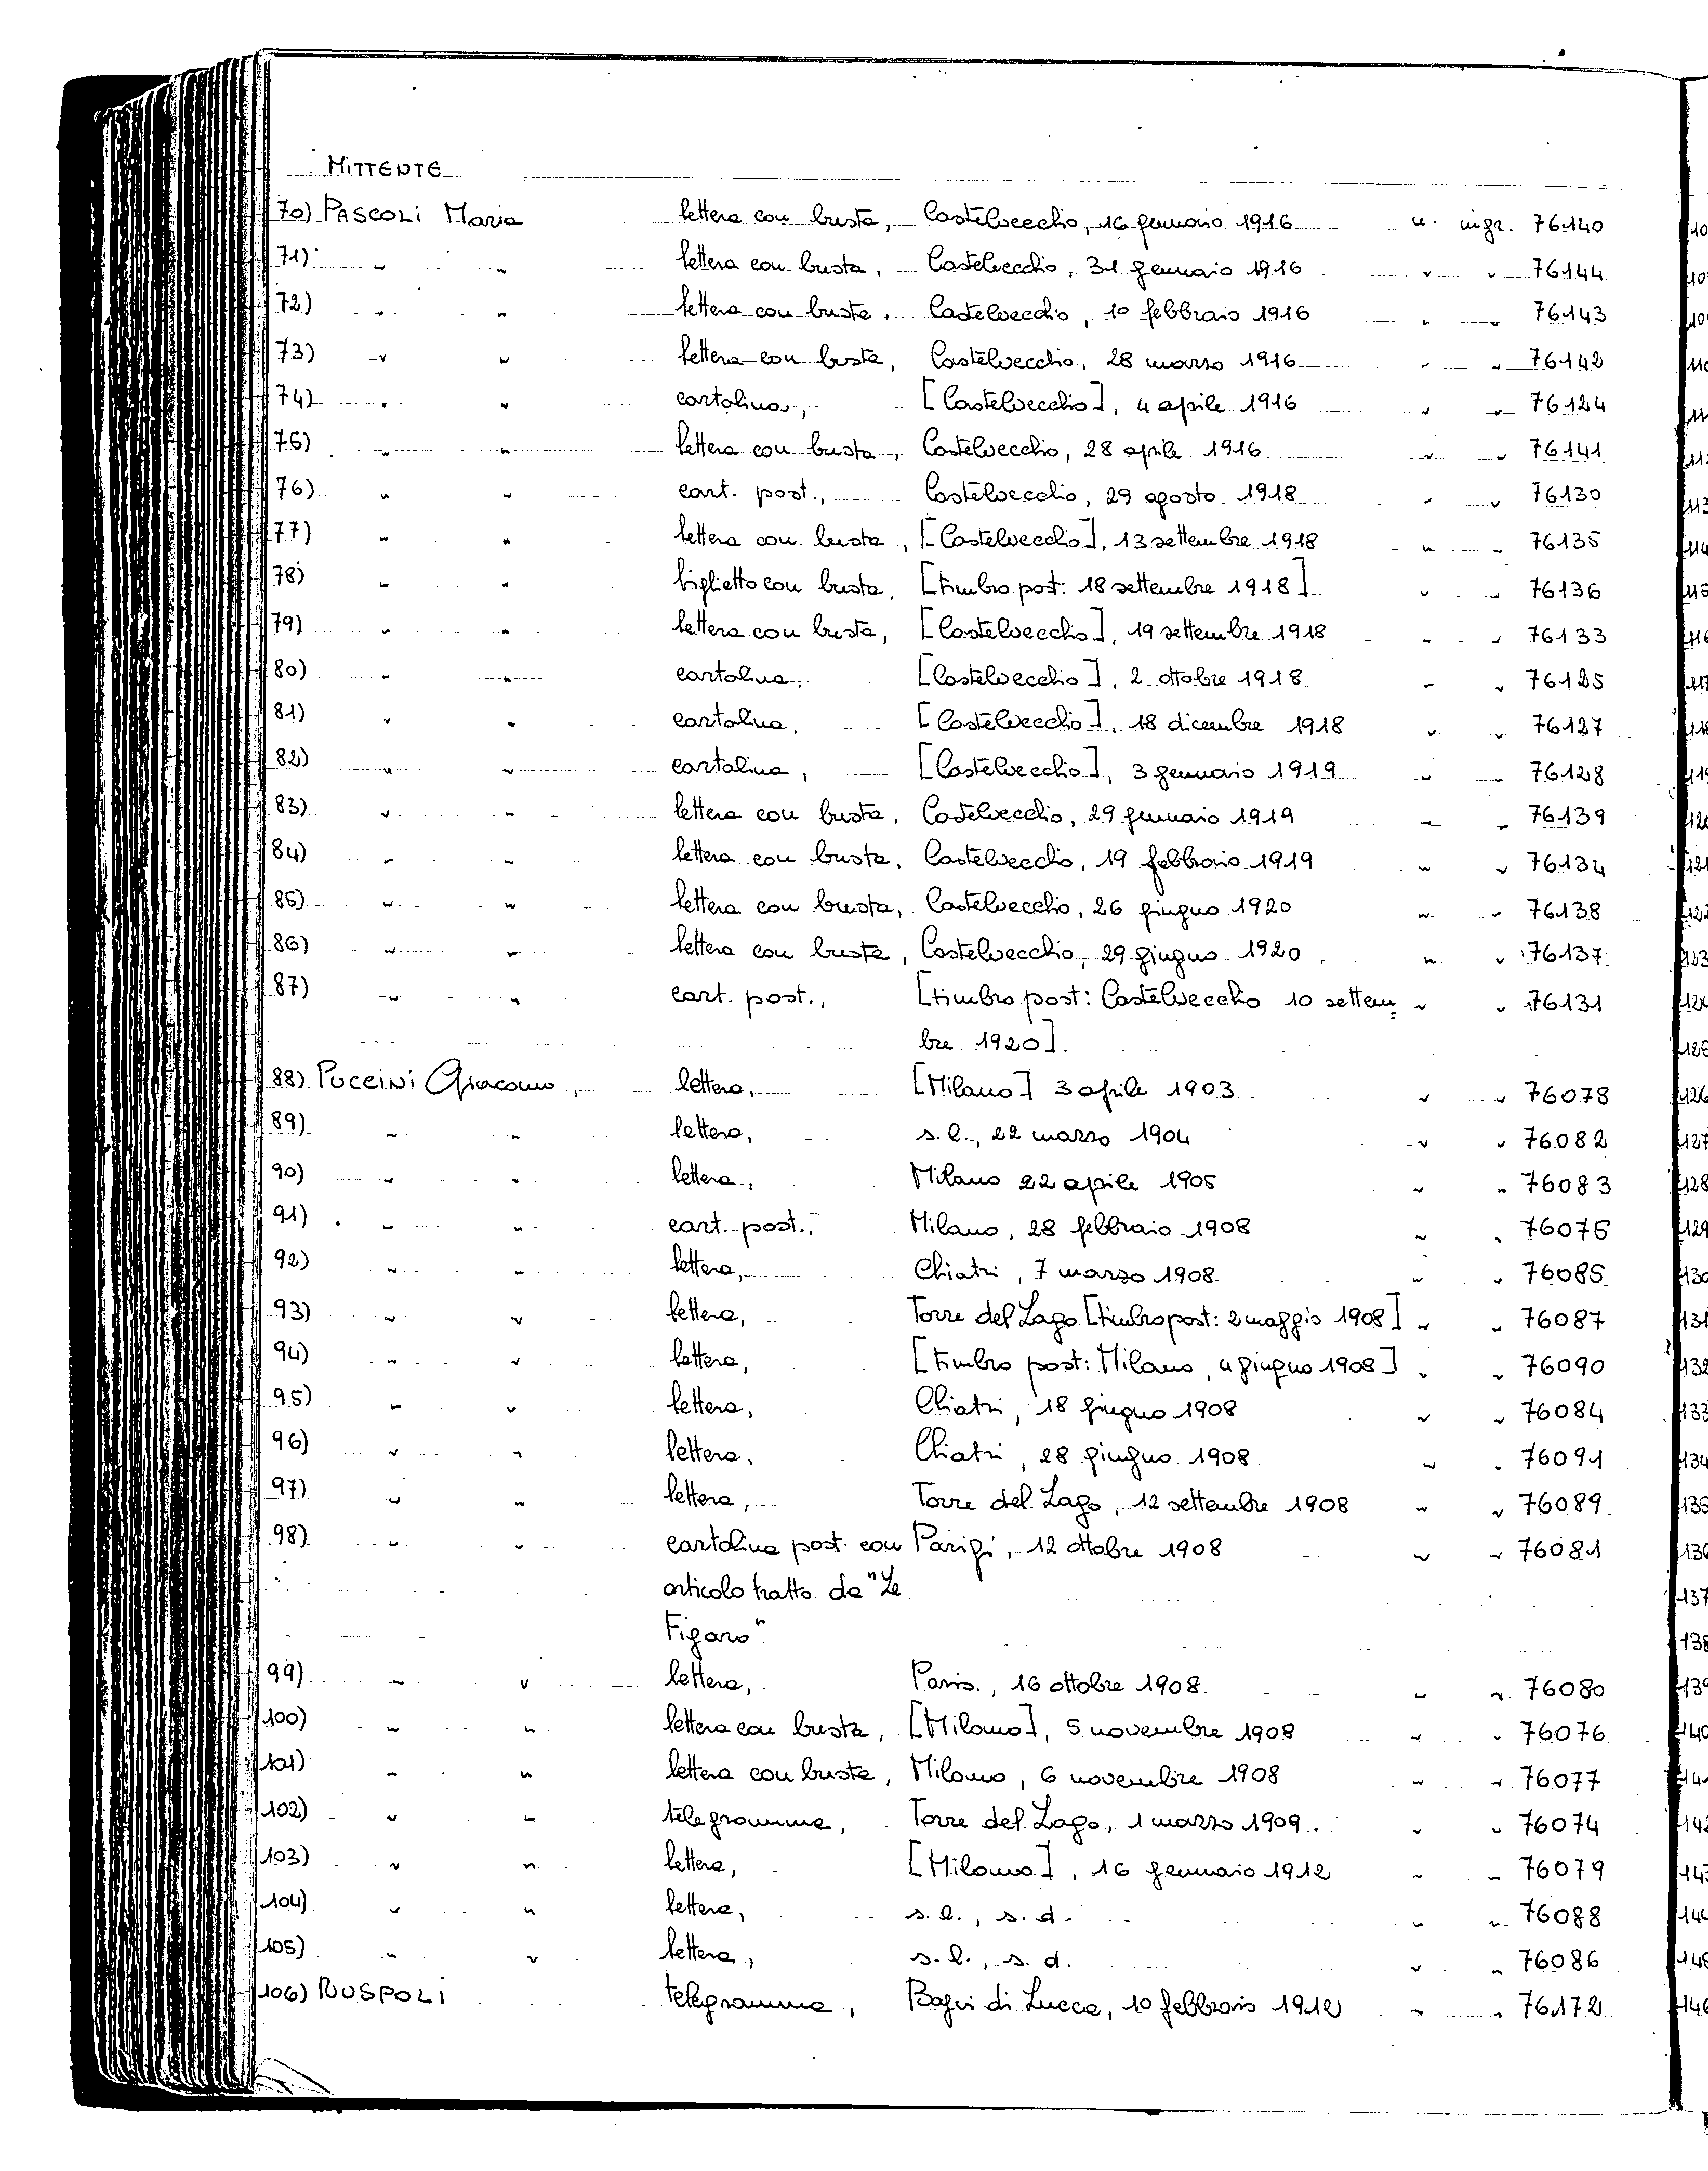 MITTENTE
70) PASCOLI Maria lettera con busta, Castelvecchio, 16 gennaio 1916 n. ingr. 76140
71) " " lettera con busta, Castelvecchio, 31 gennaio 1916 " " 76144
72) " " lettera con busta, Castelvecchio, 10 febbraio 1916 " " 76143
73) " " lettera con busta, Castelvecchio, 28 marzo 1916 " " 76142
74) " " cartolina, [Castelvecchio], 4 aprile 1916 " " 76124
75) " " lettera con busta, Castelvecchio, 28 aprile 1916 " " 76141
76) " " cart. post., Castelvecchio, 29 agosto 1918 " " 76130
77) " " lettera con busta, [Castelvecchio], 13 settembre 1918 " " 76135
78) " " biglietto con busta, [timbro post: 18 settembre 1918] " " 76136
79) " " lettera con busta, [Castelvecchio], 19 settembre 1918 " " 76133
80) " " cartolina, [Castelvecchio], 2 ottobre 1918 " " 76125
81) " " cartolina, [Castelvecchio], 18 dicembre 1918 " " 76127
82) " " cartolina, [Castelvecchio], 3 gennaio 1919 " " 76128
83) " " lettera con busta, Castelvecchio, 29 gennaio 1919 " " 76139
84) " " lettera con busta, Castelvecchio, 19 febbraio 1919 " " 76134
85) " " lettera con busta, Castelvecchio, 26 giugno 1920 " " 76138
86) " " lettera con busta, Castelvecchio, 29 giugno 1920 " " 76137
87) " " cart. post., [timbro post: Castelvecchio 10 settem= " " 76131
bre 1920].
88) PUCCINI Giacomo, lettera, [Milano] 3 aprile 1903 " " 76078
89) " " lettera, s.l., 22 marzo 1904 " " 76082
90) " " lettera, Milano 22 aprile 1905 " " 76083
91) " " cart. post., Milano, 28 febbraio 1908 " " 76075
92) " " lettera, Chiatri, 7 marzo 1908 " " 76085
93) " " lettera, Torre del Lago [timbro post: 2 maggio 1908] " " 76087
94) " " lettera, [timbro post: Milano, 4 giugno 1908] " " 76090
95) " " lettera, Chiatri, 18 giugno 1908 " " 76084
96) " " lettera, Chiatri, 28 giugno 1908 " " 76091
97) " " lettera, Torre del Lago, 12 settembre 1908 " " 76089
98) " " cartolina post. con Parigi, 12 ottobre 1908 " " 76081
articolo tratto da "Le
Figaro"
99) " " lettera, Paris, 16 ottobre 1908 " " 76080
100) " " lettera con busta, [Milano], 5 novembre 1908 " " 76076
101) " " lettera con busta, Milano, 6 novembre 1908 " " 76077
102) " " telegramma, Torre del Lago, 1 marzo 1909. " " 76074
103) " " lettera, [Milano], 16 gennaio 1912 " " 76079
104) " " lettera, s.l., s.d. " " 76088
105) " " lettera, s.l., s.d. " " 76086
106) RUSPOLI telegramma, Bagni di Lucca, 10 febbraio 1912 " " 76172